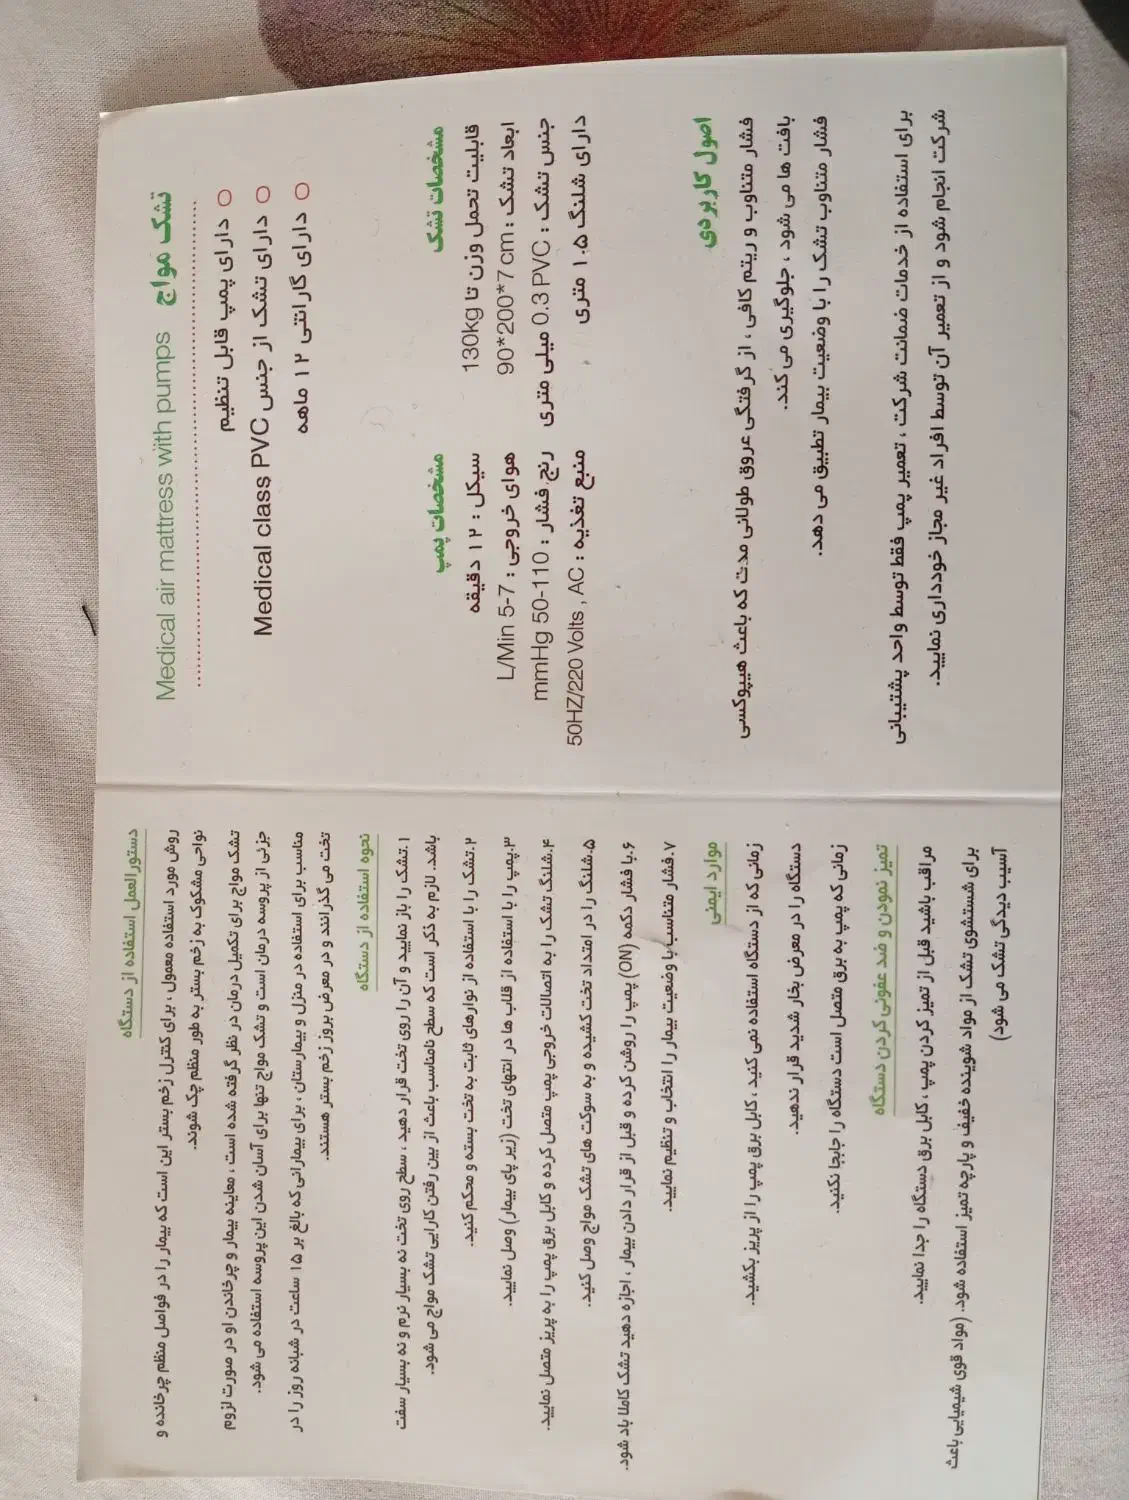 تشک مواج Medical air mattress with pumps
دارای پمپ قابل تنظیم
دارای تشک از جنس Medical class PVC
دارای گارانتی ۱۲ ماهه
مشخصات تشک
قابلیت تحمل وزن تا 130kg
ابعاد تشک : 90*200*7 cm
جنس تشک : 0.3 PVC میلی متری
دارای شلنگ ۱.۵ متری
مشخصات پمپ
سیکل : ۱۲ دقیقه
هوای خروجی : 5-7 L/Min
رنج فشار : 50-110 mmHg
منبع تغذیه : 50HZ/220 Volts , AC
اصول کاربردی
فشار متناوب و ریتم کافی ، از گرفتگی عروق طولانی مدت که باعث هیپوکسی
بافت ها می شود ، جلوگیری می کند.
فشار متناوب تشک را با وضعیت بیمار تطبیق می دهد.
برای استفاده از خدمات ضمانت شرکت ، تعمیر پمپ فقط توسط واحد پشتیبانی
شرکت انجام شود و از تعمیر آن توسط افراد غیر مجاز خودداری نمایید.
دستورالعمل استفاده از دستگاه
روش مورد استفاده معمول ، برای کنترل زخم بستر این است که بیمار را در فواصل منظم چرخانده و
نواحی مشکوک به زخم بستر به طور منظم چک شوند.
تشک مواج برای تکمیل درمان در نظر گرفته شده است ، معاینه بیمار و چرخاندن او در صورت لزوم
جزئی از پروسه درمان است و تشک مواج تنها برای آسان شدن این پروسه استفاده می شود.
مناسب برای استفاده در منزل و بیمارستان ، برای بیمارانی که بالغ بر ۱۵ ساعت در شبانه روز را در
تخت می گذرانند و در معرض بروز زخم بستر هستند.
نحوه استفاده از دستگاه
۱.تشک را باز نمایید و آن را روی تخت قرار دهید ، سطح روی تخت نه بسیار نرم و نه بسیار سفت
باشد. لازم به ذکر است که سطح نامناسب باعث از بین رفتن کارایی تشک مواج می شود.
۲.تشک را با استفاده از نوارهای ثابت به تخت بسته و محکم کنید.
۳.پمپ را با استفاده از قلاب ها در انتهای تخت (زیر پای بیمار) وصل نمایید.
۴.شلنگ تشک را به اتصالات خروجی پمپ متصل کرده و کابل برق پمپ را به پریز متصل نمایید.
۵.شلنگ را در امتداد تخت کشیده و به سوکت های تشک مواج وصل کنید.
۶.با فشار دکمه (ON) پمپ را روشن کرده و قبل از قرار دادن بیمار ، اجازه دهید تشک کاملا باد شود.
۷.فشار متناسب با وضعیت بیمار را انتخاب و تنظیم نمایید.
موارد ایمنی
زمانی که از دستگاه استفاده نمی کنید ، کابل برق پمپ را از پریز بکشید.
دستگاه را در معرض بخار شدید قرار ندهید.
زمانی که پمپ به برق متصل است دستگاه را جابجا نکنید.
تمیز نمودن و ضد عفونی کردن دستگاه
مراقب باشید قبل از تمیز کردن پمپ ، کابل برق دستگاه را جدا نمایید.
برای شستشوی تشک از مواد شوینده خفیف و پارچه تمیز استفاده شود. (مواد قوی شیمیایی باعث
آسیب دیدگی تشک می شود)